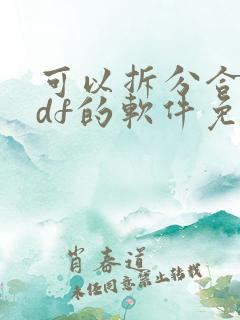 可以拆分合
df的软件免
肖春道
未经同意禁止转载